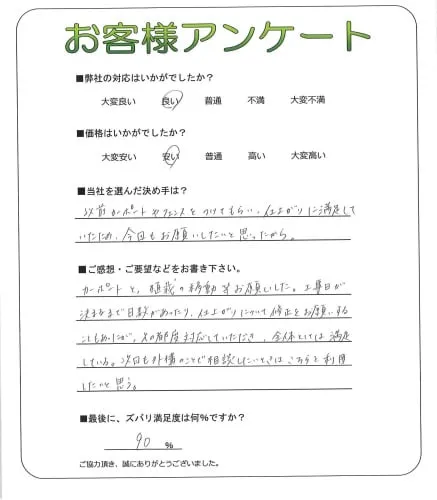 お客様アンケート
■弊社の対応はいかがでしたか？
大変良い 良い 普通 不満 大変不満
■価格はいかがでしたか？
大変安い 安い 普通 高い 大変高い
■当社を選んだ決め手は？
以前カーポートやフェンスをつけてもらい、仕上がりに満足して
いたため、今回もお願いしたいと思ったから。
■ご感想・ご要望などをお書き下さい。
カーポートと、植栽の移動等お願いした。工事日が
決まるまで日数があったり、仕上がりについて修正をお願いする
こともあったが、その都度対応していただき、全体としては満足
している。次回も外構のことで相談したいときはこちらを利用
したいと思う。
■最後に、ズバリ満足度は何％ですか？
90 ％
ご協力頂き、誠にありがとうございました。